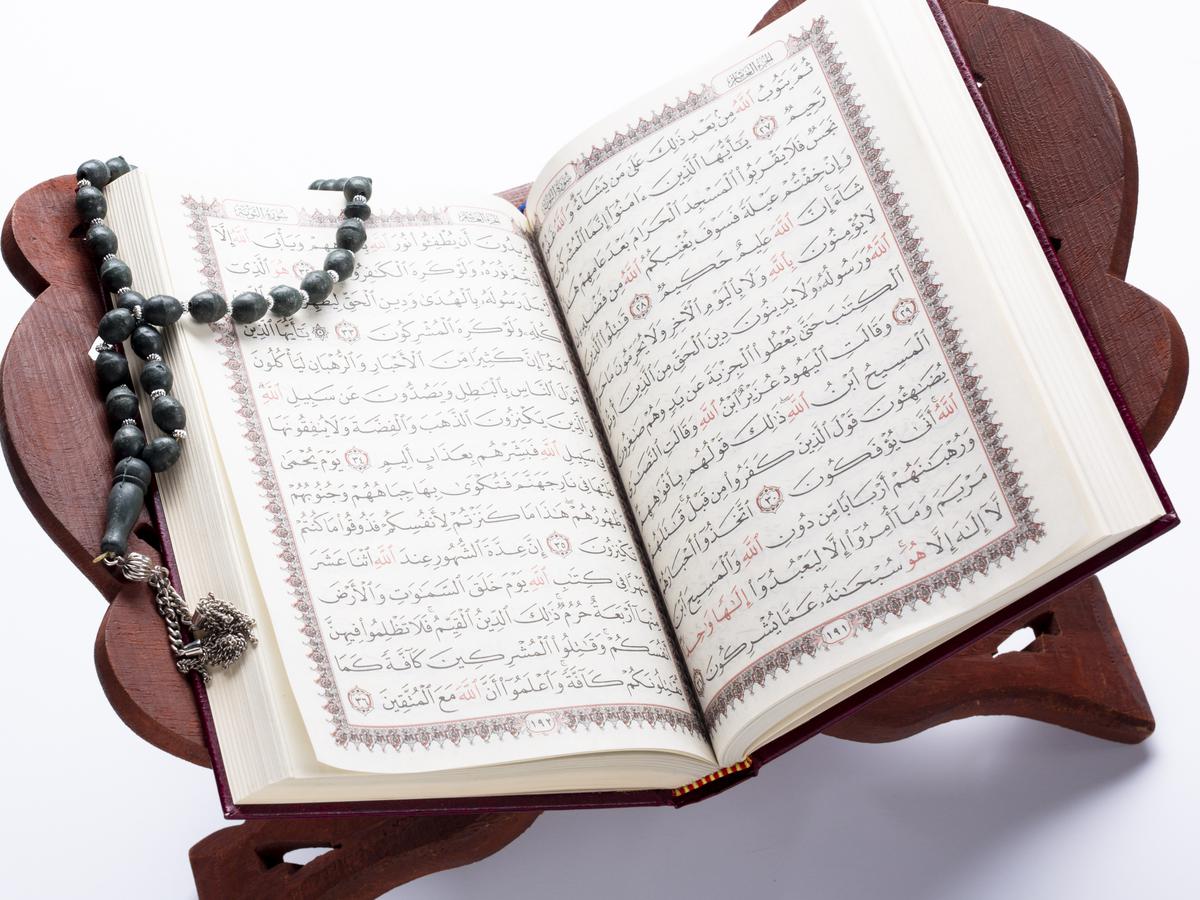 الجزء العاشر
ثُمَّ يَتُوبُ ٱللَّهُ مِنۢ بَعْدِ ذَٰلِكَ عَلَىٰ مَن يَشَآءُ وَٱللَّهُ
رَّحِيمٌ ٢٧ يَٰٓأَيُّهَا ٱلَّذِينَ ءَامَنُوٓا۟ إِنَّمَا
نَجَسٌ فَلَا يَقْرَبُوا۟ ٱلْمَسْجِدَ ٱلْحَرَامَ بَعْدَ عَامِهِمْ
وَإِنْ خِفْتُمْ عَيْلَةً فَسَوْفَ يُغْنِيكُمُ ٱللَّهُ مِن
شَآءَ إِنَّ ٱللَّهَ عَلِيمٌ حَكِيمٌ ٢٨ قَٰتِلُوا۟ ٱلَّذِينَ
لَا يُؤْمِنُونَ بِٱللَّهِ وَلَا بِٱلْيَوْمِ ٱلْءَاخِرِ وَلَا يُحَرِّمُونَ
ٱللَّهُ وَرَسُولُهُۥ وَلَا يَدِينُونَ دِينَ ٱلْحَقِّ مِنَ ٱلَّذِينَ
ٱلْكِتَٰبَ حَتَّىٰ يُعْطُوا۟ ٱلْجِزْيَةَ عَن يَدٍ وَهُمْ صَٰغِرُونَ
٢٩ وَقَالَتِ ٱلْيَهُودُ عُزَيْرٌ ٱبْنُ ٱللَّهِ وَقَالَتِ
ٱلْمَسِيحُ ٱبْنُ ٱللَّهِ ذَٰلِكَ قَوْلُهُم بِأَفْوَٰهِهِمْ
يُضَٰهِـُٔونَ قَوْلَ ٱلَّذِينَ كَفَرُوا۟ مِن قَبْلُ
ٱللَّهُ أَنَّىٰ يُؤْفَكُونَ ٣٠ ٱتَّخَذُوٓا۟
وَرُهْبَٰنَهُمْ أَرْبَابًا مِّن دُونِ ٱللَّهِ وَٱلْمَسِيحَ ٱبْنَ
مَرْيَمَ وَمَآ أُمِرُوٓا۟ إِلَّا لِيَعْبُدُوٓا۟ إِلَٰهًا وَٰحِدًا
لَّآ إِلَٰهَ إِلَّا هُوَ سُبْحَٰنَهُۥ عَمَّا يُشْرِكُونَ
١٩١
سورة التوبة
أَن يُطْفِـُٔوا۟ نُورَ ٱللَّهِ وَيَأْبَى ٱللَّهُ إِلَّآ
نُورَهُۥ وَلَوْ كَرِهَ ٱلْكَٰفِرُونَ هُوَ ٱلَّذِىٓ
رَسُولَهُۥ بِٱلْهُدَىٰ وَدِينِ ٱلْحَقِّ
كُلِّهِۦ وَلَوْ كَرِهَ ٱلْمُشْرِكُونَ ٣٣ يَٰٓأَيُّهَا ٱلَّذِينَ
إِنَّ كَثِيرًا مِّنَ ٱلْأَحْبَارِ وَٱلرُّهْبَانِ لَيَأْكُلُونَ
أَمْوَٰلَ ٱلنَّاسِ بِٱلْبَٰطِلِ وَيَصُدُّونَ عَن سَبِيلِ ٱللَّهِ
وَٱلَّذِينَ يَكْنِزُونَ ٱلذَّهَبَ وَٱلْفِضَّةَ وَلَا يُنفِقُونَهَا
سَبِيلِ ٱللَّهِ فَبَشِّرْهُم بِعَذَابٍ أَلِيمٍ ٣٤ يَوْمَ يُحْمَىٰ
عَلَيْهَا فِى نَارِ جَهَنَّمَ فَتُكْوَىٰ بِهَا جِبَاهُهُمْ وَجُنُوبُهُمْ
وَظُهُورُهُمْ هَٰذَا مَا كَنَزْتُمْ لِأَنفُسِكُمْ فَذُوقُوا۟ مَا كُنتُمْ
تَكْنِزُونَ ٣٥ إِنَّ عِدَّةَ ٱلشُّهُورِ عِندَ ٱللَّهِ ٱثْنَا عَشَرَ
شَهْرًا فِى كِتَٰبِ ٱللَّهِ يَوْمَ خَلَقَ ٱلسَّمَٰوَٰتِ وَٱلْأَرْضَ
مِنْهَآ أَرْبَعَةٌ حُرُمٌ ذَٰلِكَ ٱلدِّينُ ٱلْقَيِّمُ فَلَا تَظْلِمُوا۟ فِيهِنَّ
أَنفُسَكُمْ وَقَٰتِلُوا۟ ٱلْمُشْرِكِينَ كَآفَّةً كَمَا
يُقَٰتِلُونَكُمْ كَآفَّةً وَٱعْلَمُوٓا۟ أَنَّ ٱللَّهَ مَعَ ٱلْمُتَّقِينَ ٣٦
١٩٢